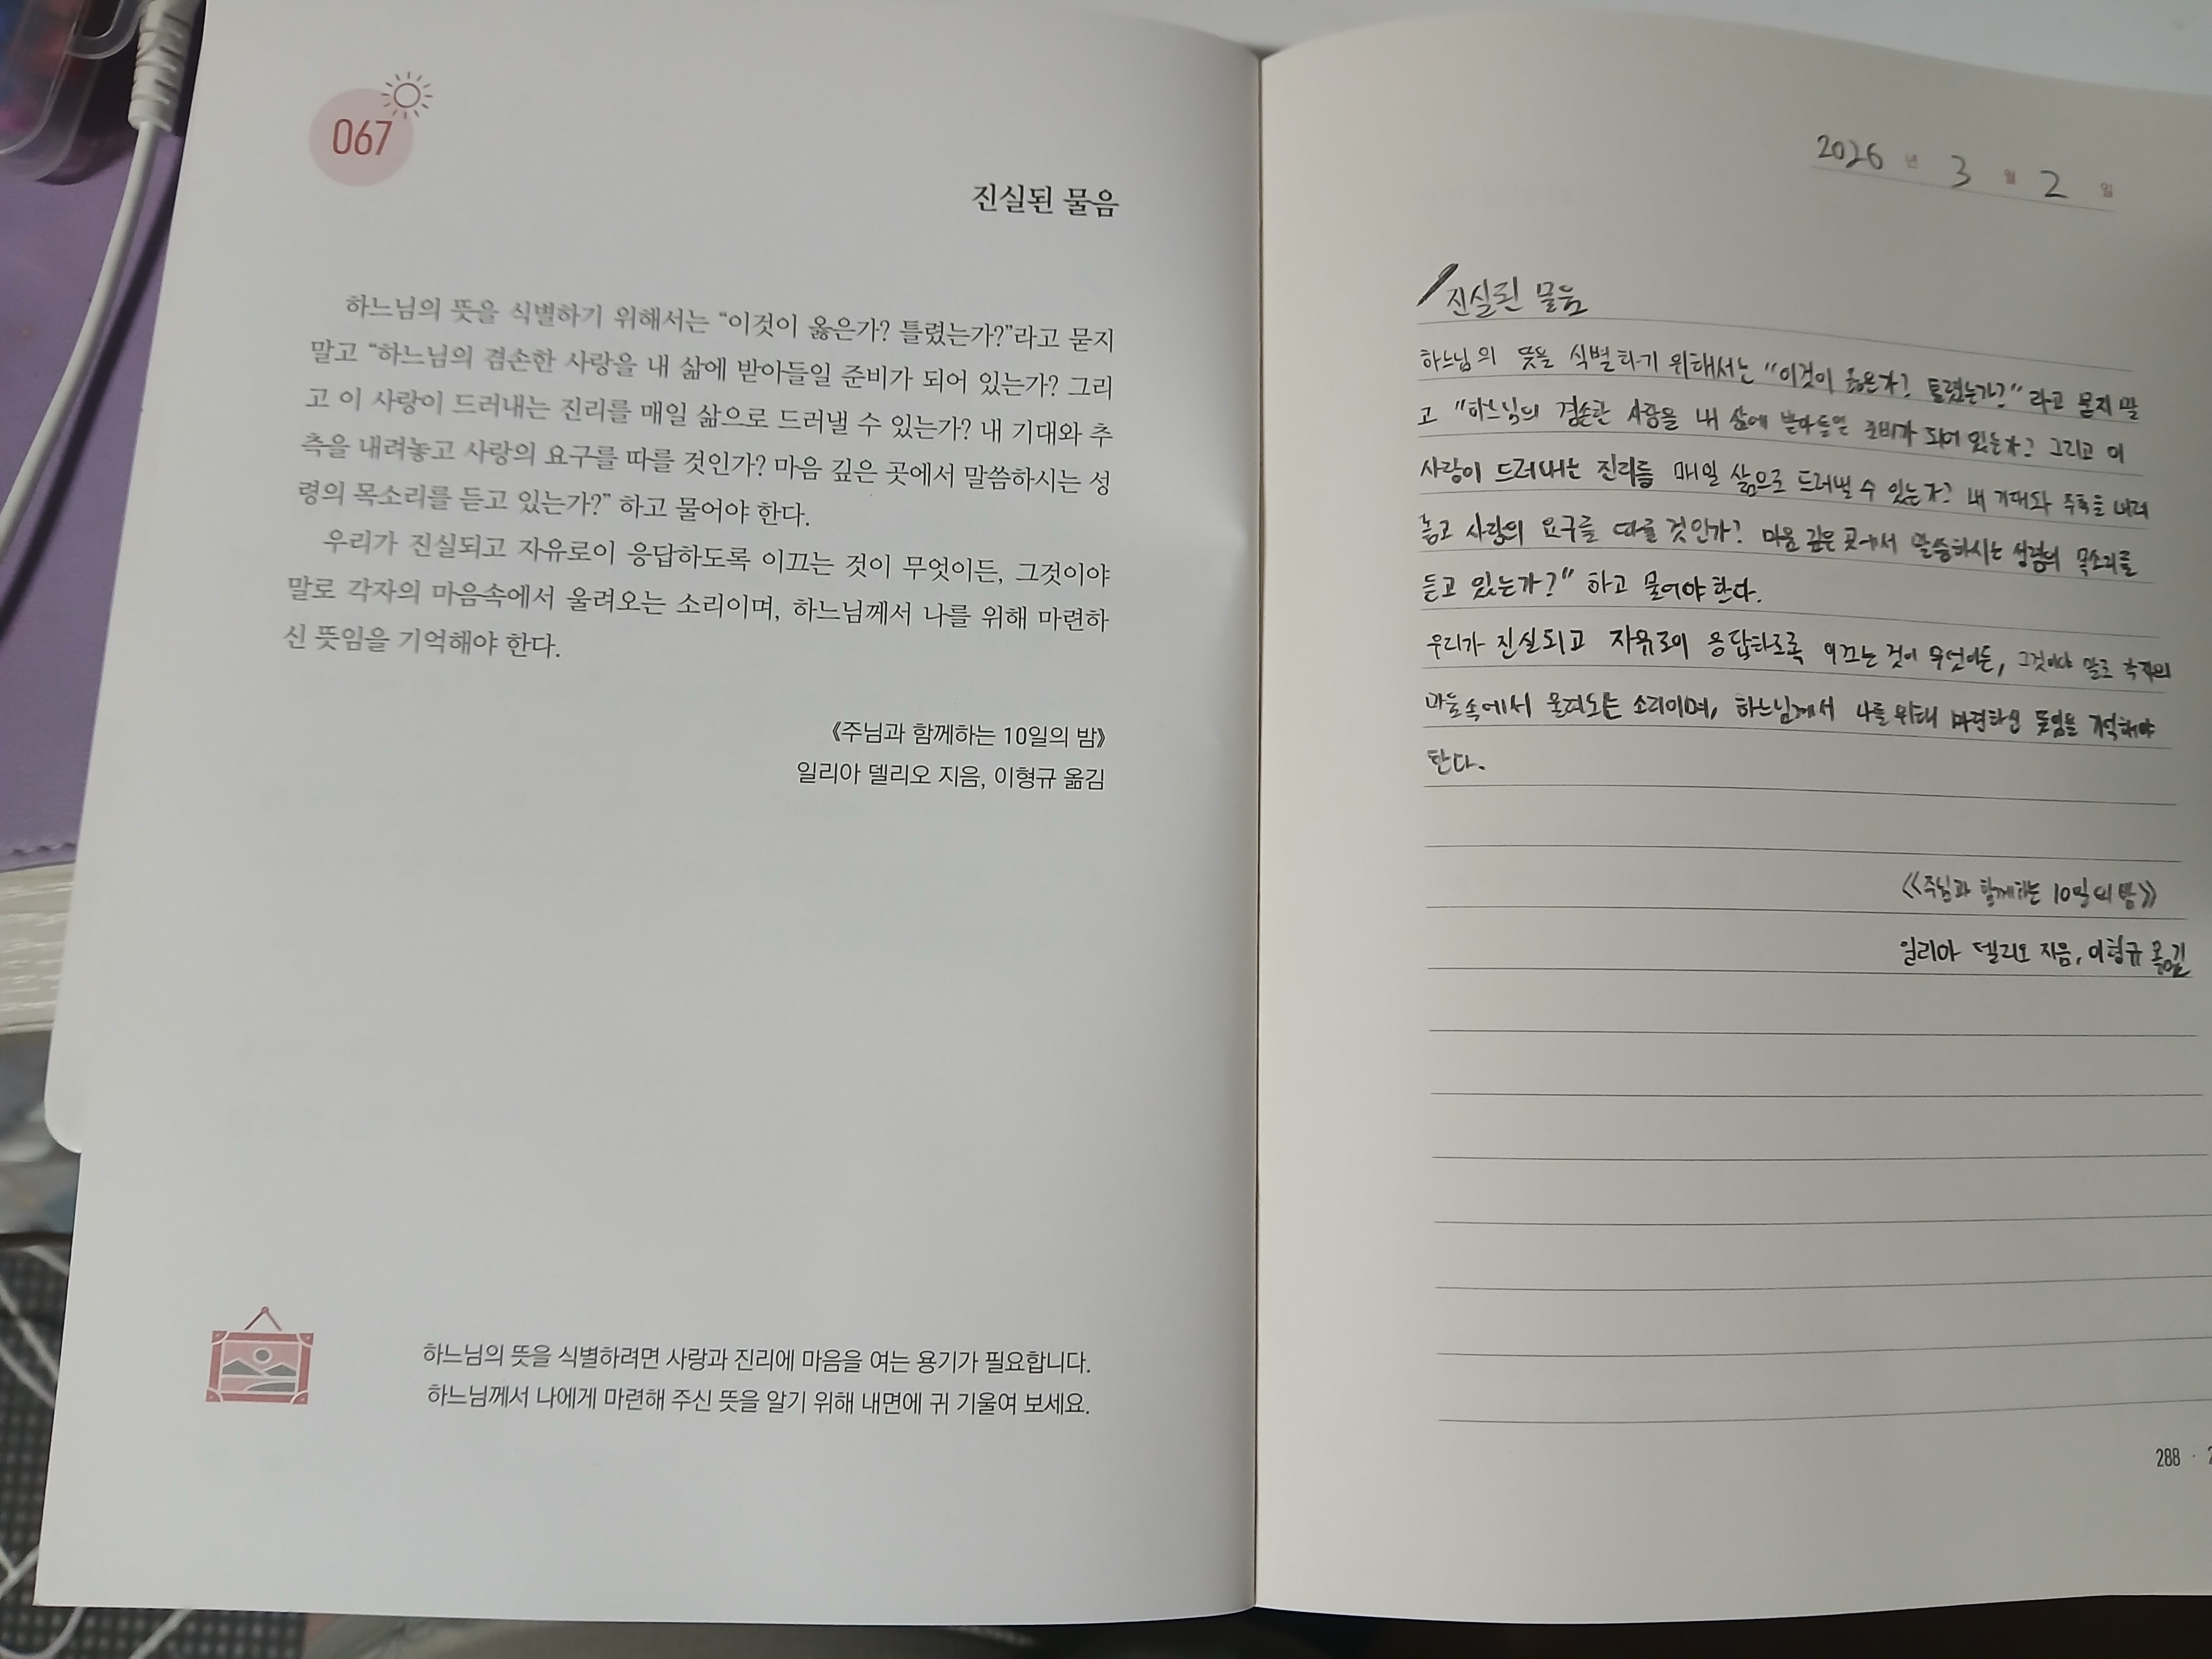 067
진실된 물음
하느님의 뜻을 식별하기 위해서는 “이것이 옳은가? 틀렸는가?”라고 묻지
말고 “하느님의 겸손한 사랑을 내 삶에 받아들일 준비가 되어 있는가? 그리
고 이 사랑이 드러내는 진리를 매일 삶으로 드러낼 수 있는가? 내 기대와 추
측을 내려놓고 사랑의 요구를 따를 것인가? 마음 깊은 곳에서 말씀하시는 성
령의 목소리를 듣고 있는가?” 하고 물어야 한다.
우리가 진실되고 자유로이 응답하도록 이끄는 것이 무엇이든, 그것이야
말로 각자의 마음속에서 울려오는 소리이며, 하느님께서 나를 위해 마련하
신 뜻임을 기억해야 한다.
《주님과 함께하는 10일의 밤》
일리아 델리오 지음, 이형규 옮김
하느님의 뜻을 식별하려면 사랑과 진리에 마음을 여는 용기가 필요합니다.
하느님께서 나에게 마련해 주신 뜻을 알기 위해 내면에 귀 기울여 보세요.
2026 년 3 월 2 일
진실된 물음
하느님의 뜻을 식별하기 위해서는 "이것이 옳은가? 틀렸는가?"라고 묻지 말
고 "하느님의 겸손한 사랑을 내 삶에 받아들일 준비가 되어 있는가? 그리고 이
사랑이 드러내는 진리를 매일 삶으로 드러낼 수 있는가? 내 기대와 추측을 내려
놓고 사랑의 요구를 따를 것인가? 마음 깊은 곳에서 말씀하시는 성령의 목소리를
듣고 있는가?" 하고 물어야 한다.
우리가 진실되고 자유로이 응답하도록 이끄는 것이 무엇이든, 그것이야 말로 각자의
마음속에서 울려오는 소리이며, 하느님께서 나를 위해 마련하신 뜻임을 기억해야
한다.
《주님과 함께하는 10일의 밤》
일리아 델리오 지음, 이형규 옮김
288